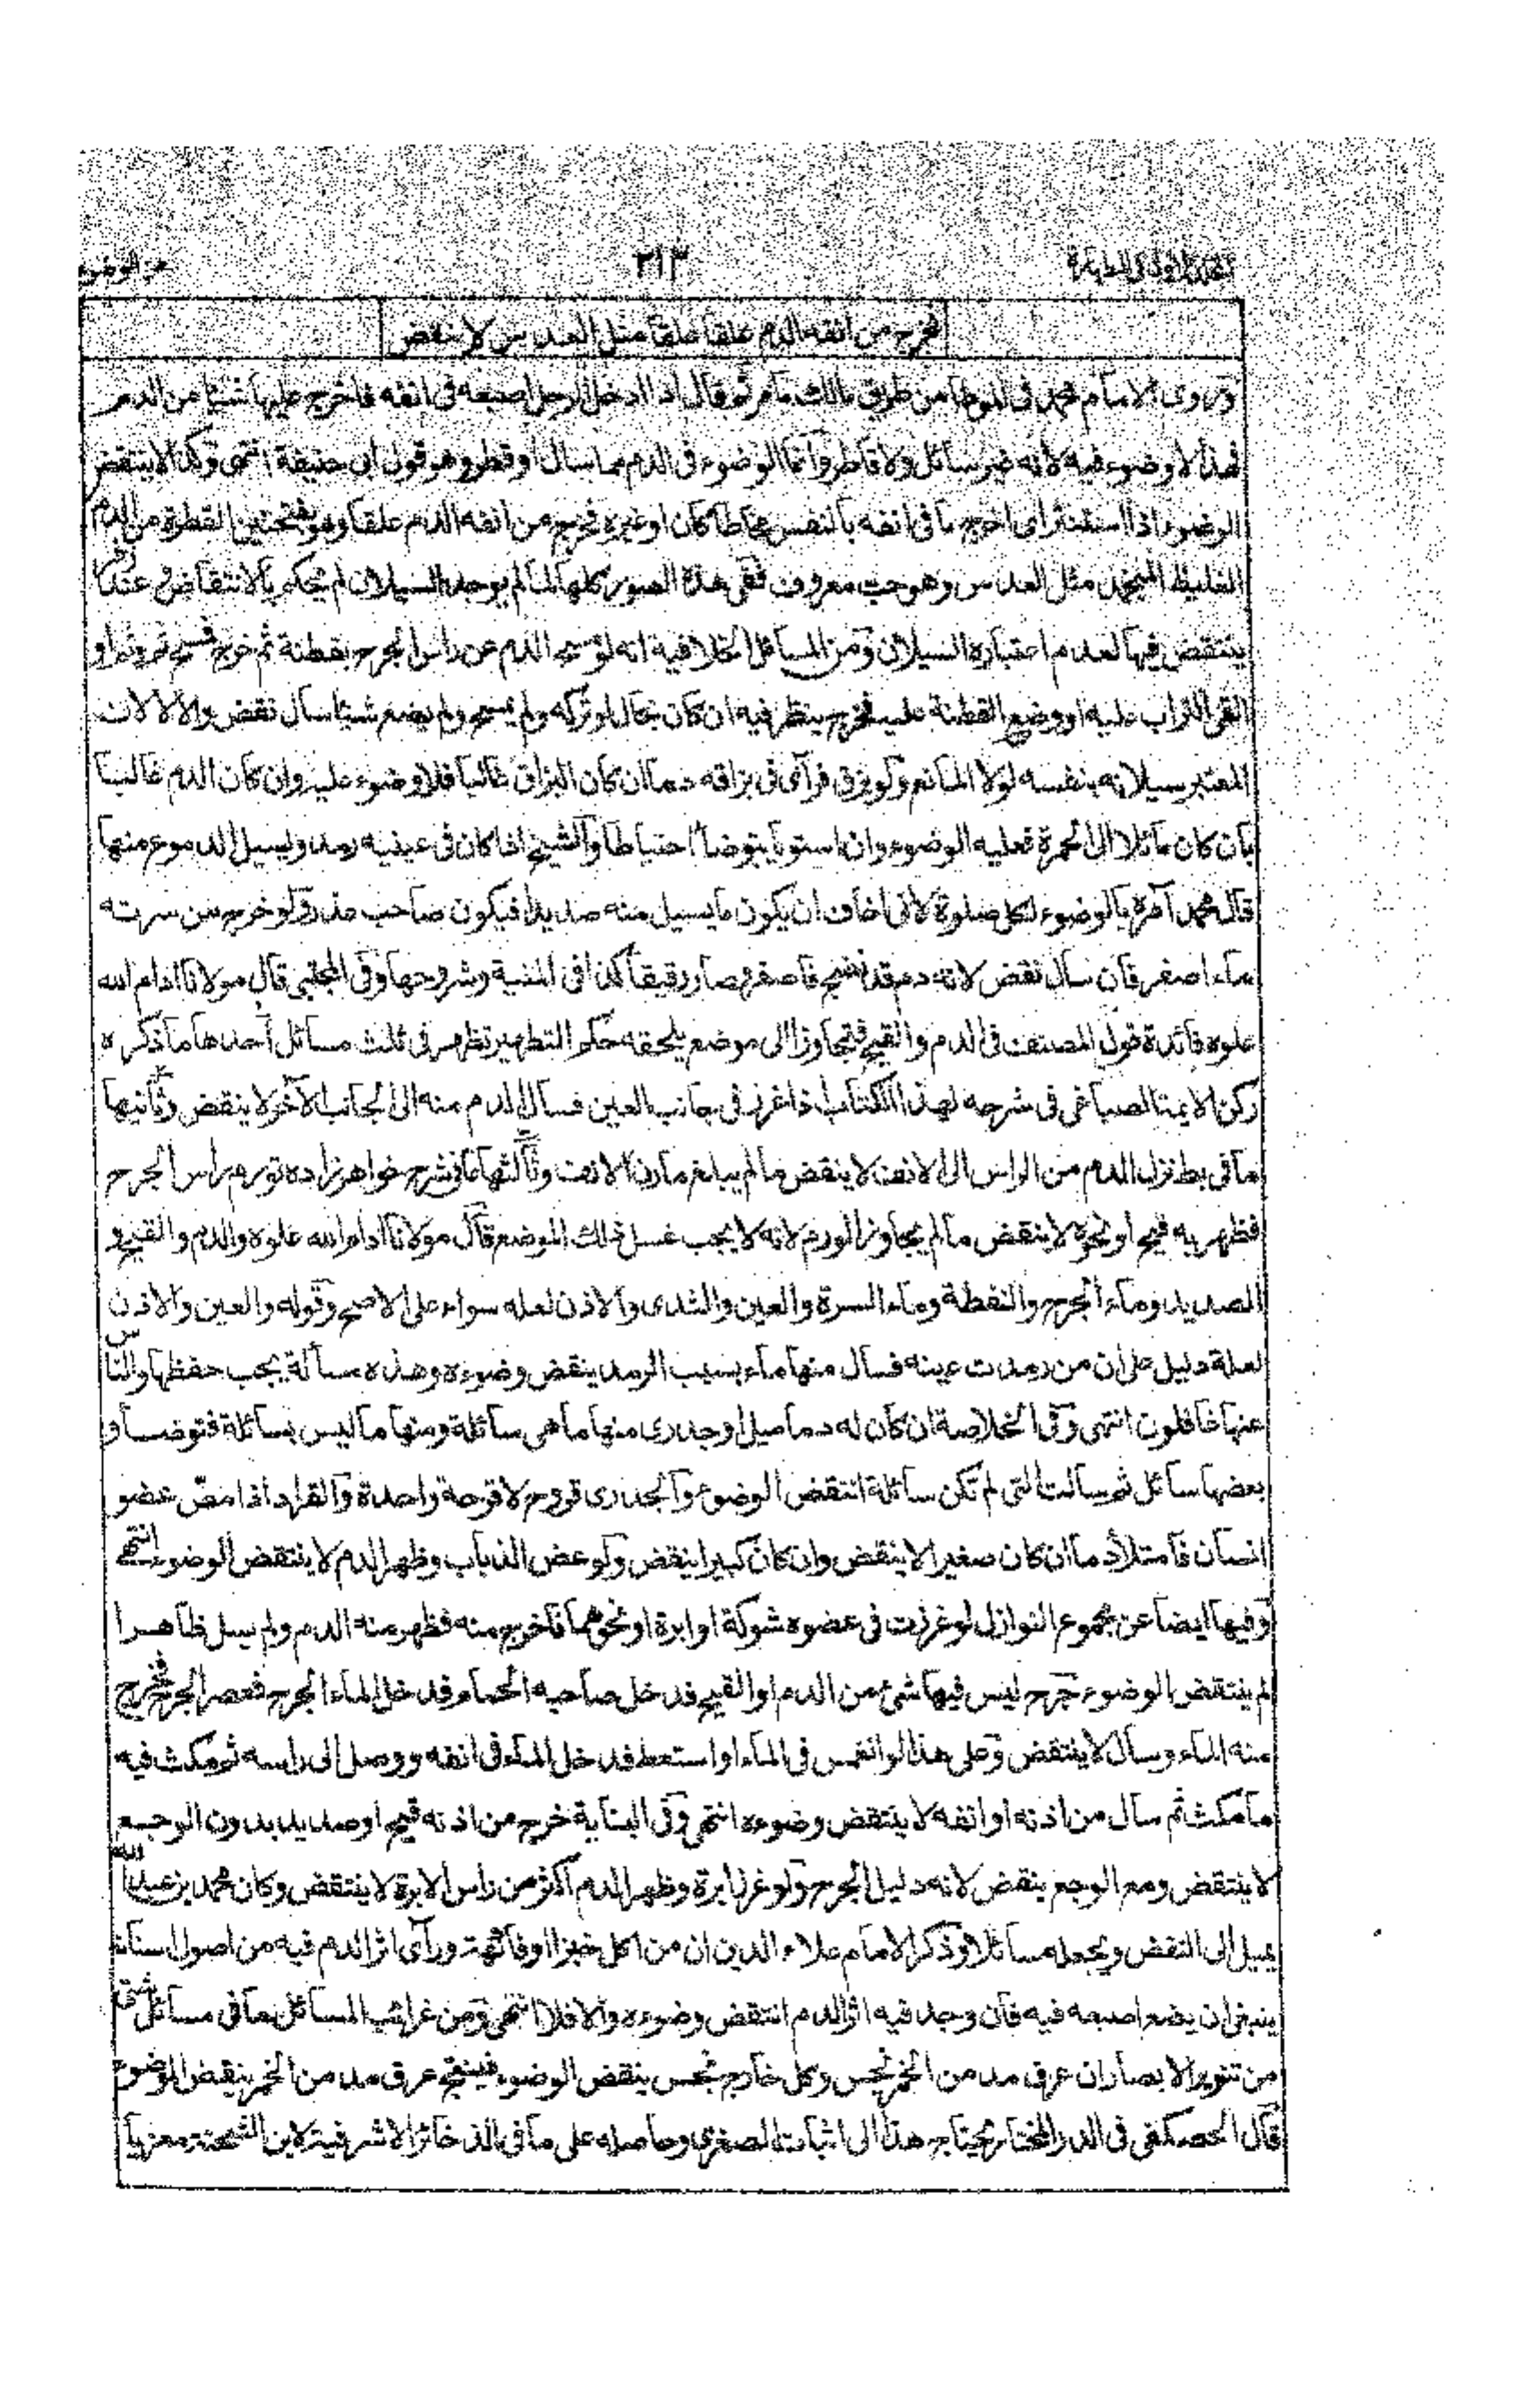 ٢١٣
فخرج من انفه الدم علقا علقا مثل العدس لا ينقض
وروى الامام محمد فى الموطا من طريق مالك ما مر ثم قال اذا ادخل الرجل اصبعه فى انفه فاخرج عليها شيئا من الدم
فهذا لا وضوء فيه لانه غير سائل ولا قاطر وانما الوضوء فى الدم مما سال او قطر وهو قول ابى حنيفة انتهى وكذا لا ينتقض
الوضوء اذا استنثر اى اخرج ما فى انفه بالنفس مخاطا كان او غيره فخرج من انفه الدم علقا وهو بفتحتين القطرة من الدم
الغليظ المنجمد مثل العدس وهو حب معروف ففى هذه الصور كلها لما لم يوجد السيلان لم يحكم بالانتقاض وعند زفر
ينتقض فيها لعدم اعتباره السيلان ومن المسائل الخلافية انه لو مسح الدم عن راس الجرح بقطنة ثم خرج فمسح ثم وثم او
القى التراب عليه او وضع القطنة عليه فخرج ينظر فيه ان كان بحال لو تركه ولم يمسح ولم يضع شيئا سال نقض والا لا لان
المعتبر سيلانه بنفسه لولا المانع ولو بزق فرآى فى بزاقه دما ان كان البزاق غالبا فلا وضوء عليه وان كان الدم غالبا
بان كان مائلا الى الحمرة فعليه الوضوء وان استويا يتوضأ احتياطا والشيخ اذا كان فى عينيه رمد ويسيل الدموع منها
قال محمد آمره بالوضوء لكل صلوة لانى اخاف ان يكون ما يسيل منه صديدا فيكون صاحب عذر ولو خرج من سرته
ماء اصفر فان سال نقض لانه دم قد نضج فاصفر وصار رقيقا كذا فى المنية وشروحها وفى المجتبى قال مولانا ادام الله
علوه فائدة قول المصنف فى الدم والقيح فتجاوزا الى موضع يلحقه حكم التطهير تظهر فى ثلث مسائل احدها ما ذكره
ركن الائمة الصباغى فى شرحه لهذا الكتاب اذا غرز فى جانب العين فسال الدم منه الى الجانب الآخر لا ينقض وثانيها
ما فى بط نزل الدم من الراس الى الانف لا ينقض ما لم يبلغ مارن الانف وثالثها ما فى شرح خواهر زاده تورم راس الجرح
فظهر به قيح او نحوه لا ينقض ما لم يجاوز الورم لانه لا يجب غسل ذلك الموضع قال مولانا ادام الله علوه والدم والقيح و
الصديد وماء الجرح والنفطة وماء السرة والعين والثدى والاذن لعله سواء على الاصح وقوله والعين والاذن
لعلة دليل على ان من رمدت عينه فسال منها ماء بسبب الرمد ينقض وضوءه وهذه مسألة يجب حفظها والناس
عنها غافلون انتهى وفى الخلاصة ان كان له دماميل او جدرى منها ما هى سائلة ومنها ما ليس بسائلة فتوضأ و
بعضها سائل ثم سالت التى لم تكن سائلة انتقض الوضوء والجدرى قروح لا قرحة واحدة والقراد اذا مص عضو
انسان فامتلأ دما ان كان صغيرا لا ينتقض وان كان كبيرا ينقض ولو عض الذباب وظهر الدم لا ينتقض الوضوء انتهى
وفيها ايضا عن مجموع النوازل لو غرزت فى عضوه شوكة او ابرة او نحوهما فاخرج منه فظهر منه الدم ولم يسل ظاهرا
لم ينتقض الوضوء جرح ليس فيها شئ من الدم او القيح فدخل صاحبه الحمام فدخل الماء الجرح فعصر الجرح فخرج
منه الماء وسال لا ينتقض وعلى هذا لو انغمس فى الماء او استعط فدخل الماء فى انفه ووصل الى راسه ثم مكث فيه
ما مكث ثم سال من اذنه او انفه لا ينتقض وضوءه انتهى وفى البناية خرج من اذنه قيح او صديد بدون الوجع
لا ينتقض ومع الوجع ينقض لانه دليل الجرح ولو غرز ابرة وظهر الدم اكثر من راس الابرة لا ينتقض وكان محمد بن عبد الله
يميل الى النقض ويجعله سائلا وذكر الامام علاء الدين ان من اكل خبزا او فاكهة ورآى اثر الدم فيه من اصول اسنانه
ينبغى ان يضع اصبعه فيه فان وجد فيه اثر الدم انتقض وضوءه والا فلا انتهى ومن غرائب المسائل ما فى مسائل شتى
من تنوير الابصار ان عرق مدمن الخمر نجس وكل خارج نجس ينقض الوضوء فينتج عرق مدمن الخمر ينقض الوضوء
قال الحصكفى فى الدر المختار يحتاج هذا الى اثبات الصغرى وحاصله على ما فى الذخائر الاشرفية لابن الشحنة معزيا